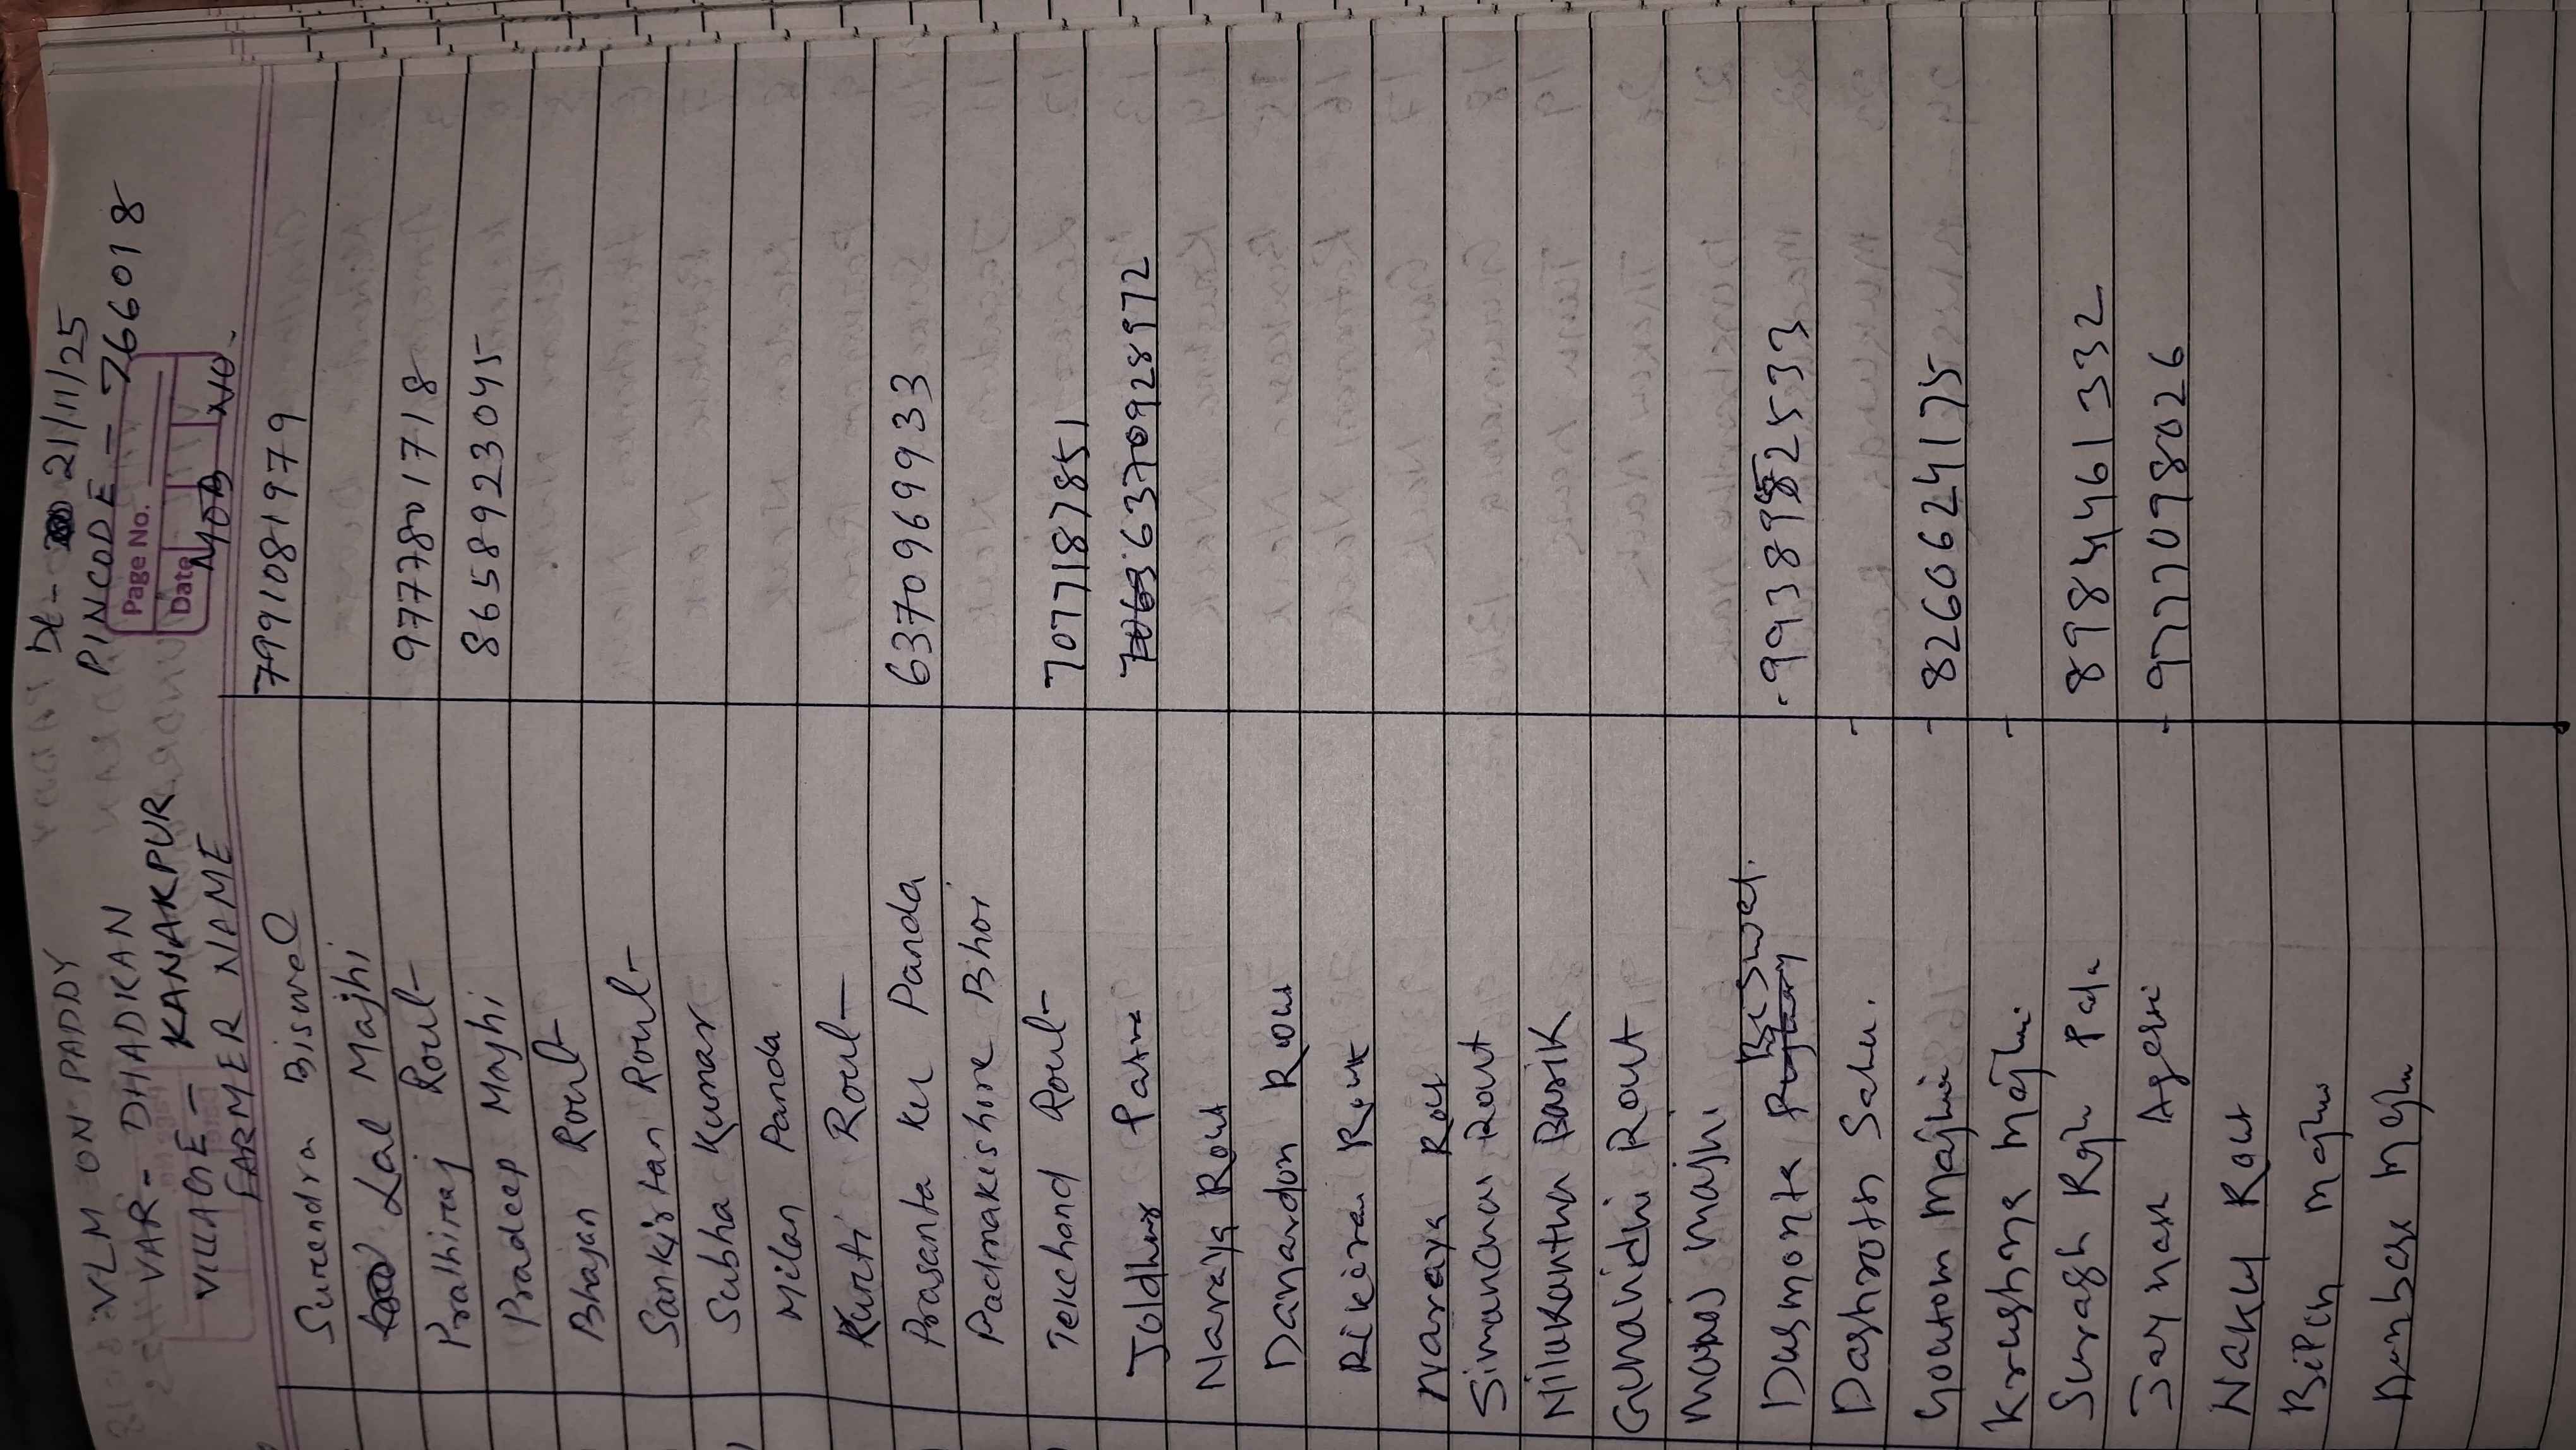 VLM ON PADDY Dt- 21/11/25
VAR - DHADKAN PINCODE - 766018
VILLAGE - KANAKPUR
Page No.
Date
FARMER NAME MOB NO.
Surendra Biswal 7991081979
Lal Majhi
Prathiraj Rout 9777801718
Pradeep Majhi 8658923045
Bhajan Rout
Sankirtan Rout
Subha Kumar
Milan Panda
Kurti Rout
Prasanta Ku Panda 6370969933
Padmakishore Bhoi
Tekchand Rout 7077187851
Joldhar Patra 6370928972
Naraya Rout
Damandon Rout
Rikiram Rout
Naraya Rout
Simanchal Rout
Nilakantha Barik
Gunanidhi Rout
Majhi
Dusmonta Biswal. 9938952533
Dashroth Sahu. -
Goutom Majhi - 8260624175
Krushna Majhi -
Suragh Rajh 8984461332
Jaymash Ageri - 9777098026
Naku Rout
Bipin Majhi
Majhi